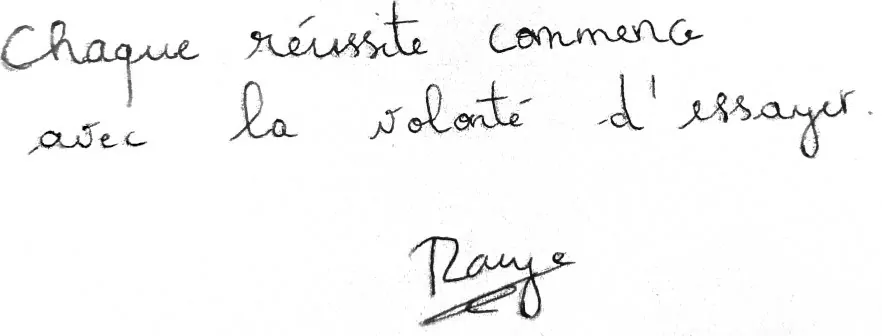 Chaque réussite commence
avec la volonté d'essayer.